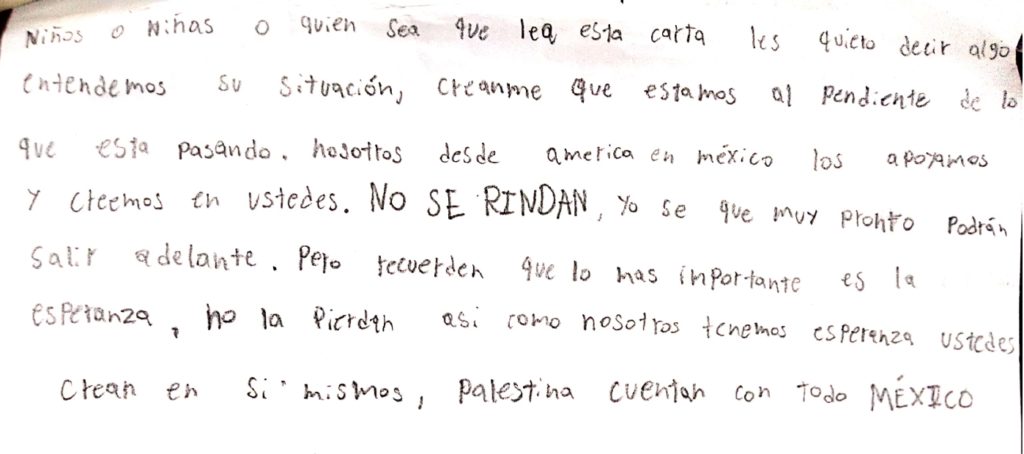 Niños o Niñas o quien sea que lea esta carta les quiero decir algo
entendemos su situación, creanme que estamos al pendiente de lo
que esta pasando. nosotros desde america en méxico los apoyamos
y creemos en ustedes. NO SE RINDAN, Yo se que muy pronto podrán
salir adelante. Pero recuerden que lo mas importante es la
esperanza, no la pierdan asi como nosotros tenemos esperanza ustedes
crean en si mismos, palestina cuentan con todo MÉXICO